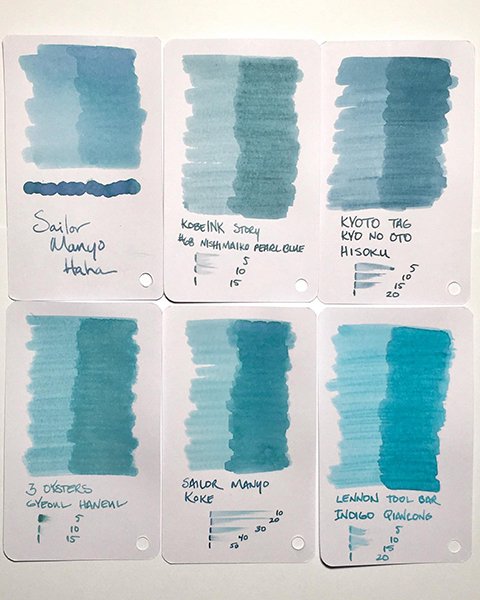 Sailor
Manyo
Haha
KOBEINK STORY
#68 NISHIMAIKO PEARL BLUE
5
10
15
KYOTO TAG
KYO NO OTO
HISOKU
5
10
15
20
3 OYSTERS
GYEOUL HANEUL
5
10
15
SAILOR MANYO
KOKE
10
20
30
40
50
LENNON TOOL BAR
INDIGO QIANLONG
5
10
15
20